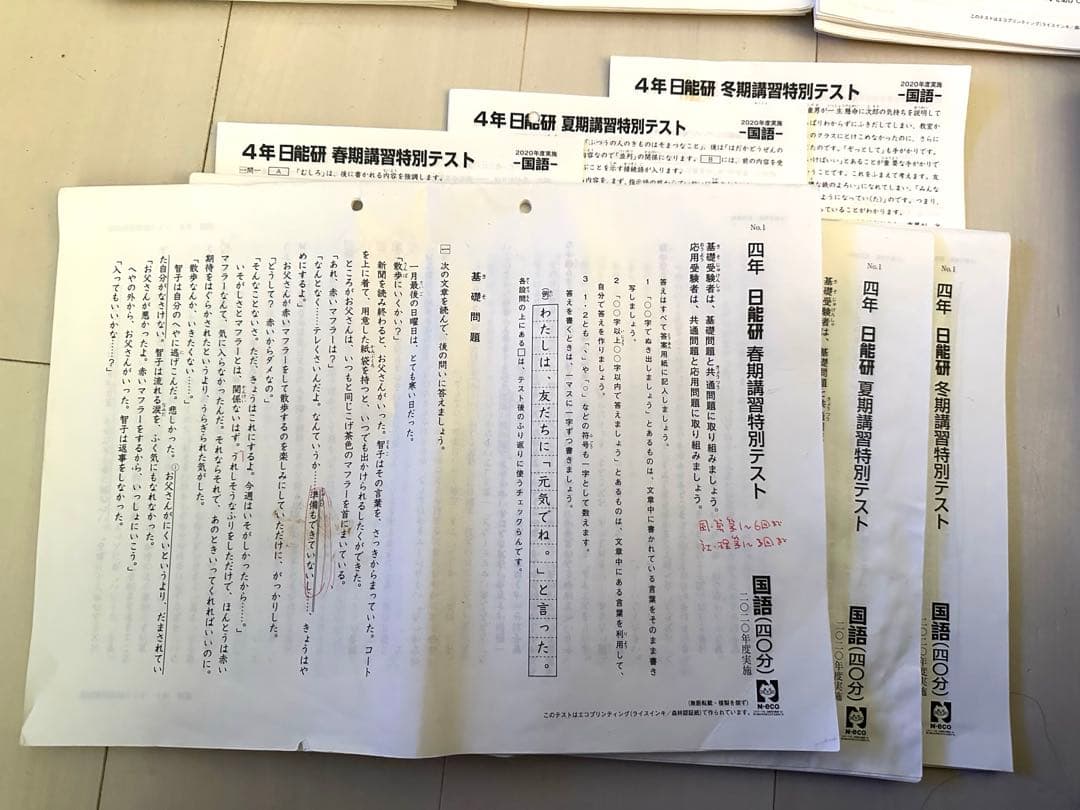 このテストはエコプリンティング(ライスインキ/
4年 日能研 冬期講習特別テスト
2020年度実施
-国語-
4年 日能研 夏期講習特別テスト
2020年度実施
-国語-
4年 日能研 春期講習特別テスト
2020年度実施
-国語-
一問一 A 「むしろ」は、後に書かれる内容を強調します。
No.1
四年 日能研 冬期講習特別テスト
国語(四〇分)
二〇二〇年度実施
N-eco
No.1
四年 日能研 夏期講習特別テスト
国語(四〇分)
二〇二〇年度実施
N-eco
基礎受験者は、基礎問題と
No.1
四年 日能研 春期講習特別テスト
国語(四〇分)
二〇二〇年度実施
N-eco
基礎受験者は、基礎問題と共通問題に取り組みましょう。
応用受験者は、共通問題と応用問題に取り組みましょう。
答えはすべて答案用紙に記入しましょう。
1 「〇〇字でぬき出しましょう」とあるものは、文章中に書かれている言葉をそのまま書き
写しましょう。
2 「〇〇字以上〇〇字以内で答えましょう」とあるものは、文章中にある言葉を利用して、
自分で答えを作りましょう。
3 1・2とも「、」や「。」などの符号も一字として数えます。
答えを書くときは、一マスに一字ずつ書きましょう。
例 わたしは、友だちに「元気でね。」と言った。
各設問の上にある□は、テスト後のふり返りに使うチェックらんです。
基礎問題
一 次の文章を読んで、後の問いに答えましょう。
一月最後の日曜日は、とても寒い日だった。
「散歩にいくかい?」
新聞を読み終わると、お父さんがいった。智子はその言葉を、さっきからまっていた。コート
を上に着て、用意した紙袋を持つと、いつでも出かけられるしたくができた。
ところがお父さんは、いつもと同じこげ茶色のマフラーを首にまいている。
「あれ、赤いマフラーは?」
「なんとなく……、テレくさいんだよ。なんていうか……準備もできていないし……、きょうはや
めにするよ。」
お父さんが赤いマフラーをして散歩するのを楽しみにしていただけに、がっかりした。
「どうして? 赤いからダメなの。」
「そんなことないさ。ただ、きょうはこれにするよ。今週はいそがしかったから……。」
いそがしさとマフラーとは、関係ないはず。うれしそうなふりをしただけで、ほんとうは赤い
マフラーなんて、気に入らなかったんだ。それならそれで、あのときいってくれればいいのに。
期待をはぐらかされたというより、うらぎられた気がした。
「散歩なんか、いきたくない……。」
智子は自分のへやに逃げこんだ。悲しかった。①お父さんがにくいというより、だまされてい
た自分がなさけない。智子は流れる涙を、ふく気にもなれなかった。
「お父さんが悪かったよ。赤いマフラーをするから、いっしょにいこう。」
へやの外から、お父さんがいった。智子は返事をしなかった。
「入ってもいいかな……?」
(無断転載・複製を禁ず)
このテストはエコプリンティング(ライスインキ/森林認証紙)で作られています。